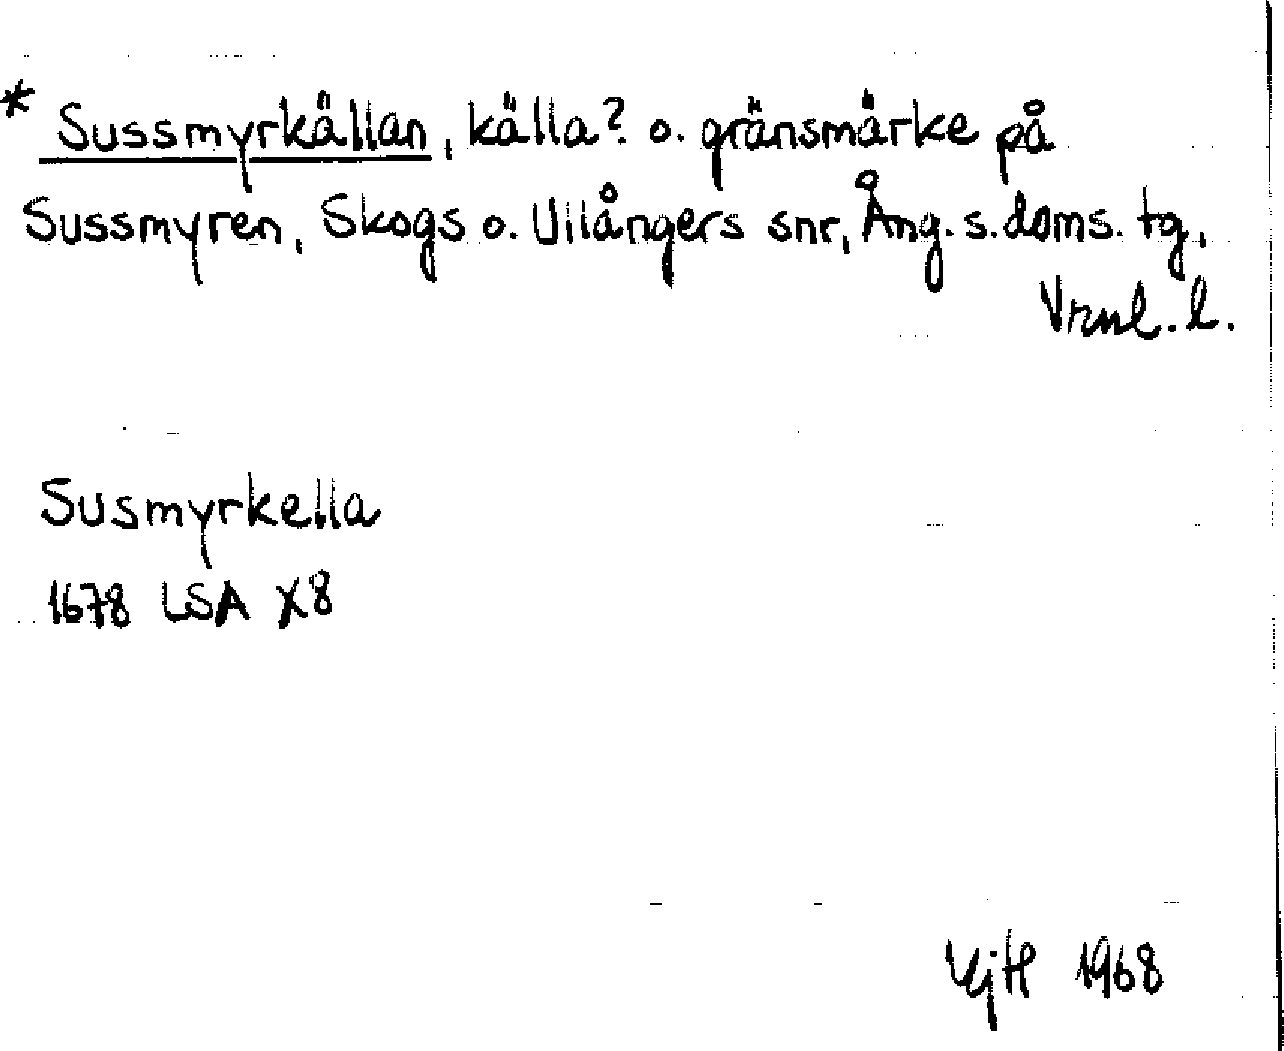 * Sussmyrkällan, källa? o. gränsmärke på
Sussmyren, Skogs o. Ullångers snr, Ång. s. doms. tg,
Vrnl. l.
Susmyrkella
1678 LSA X8
1968